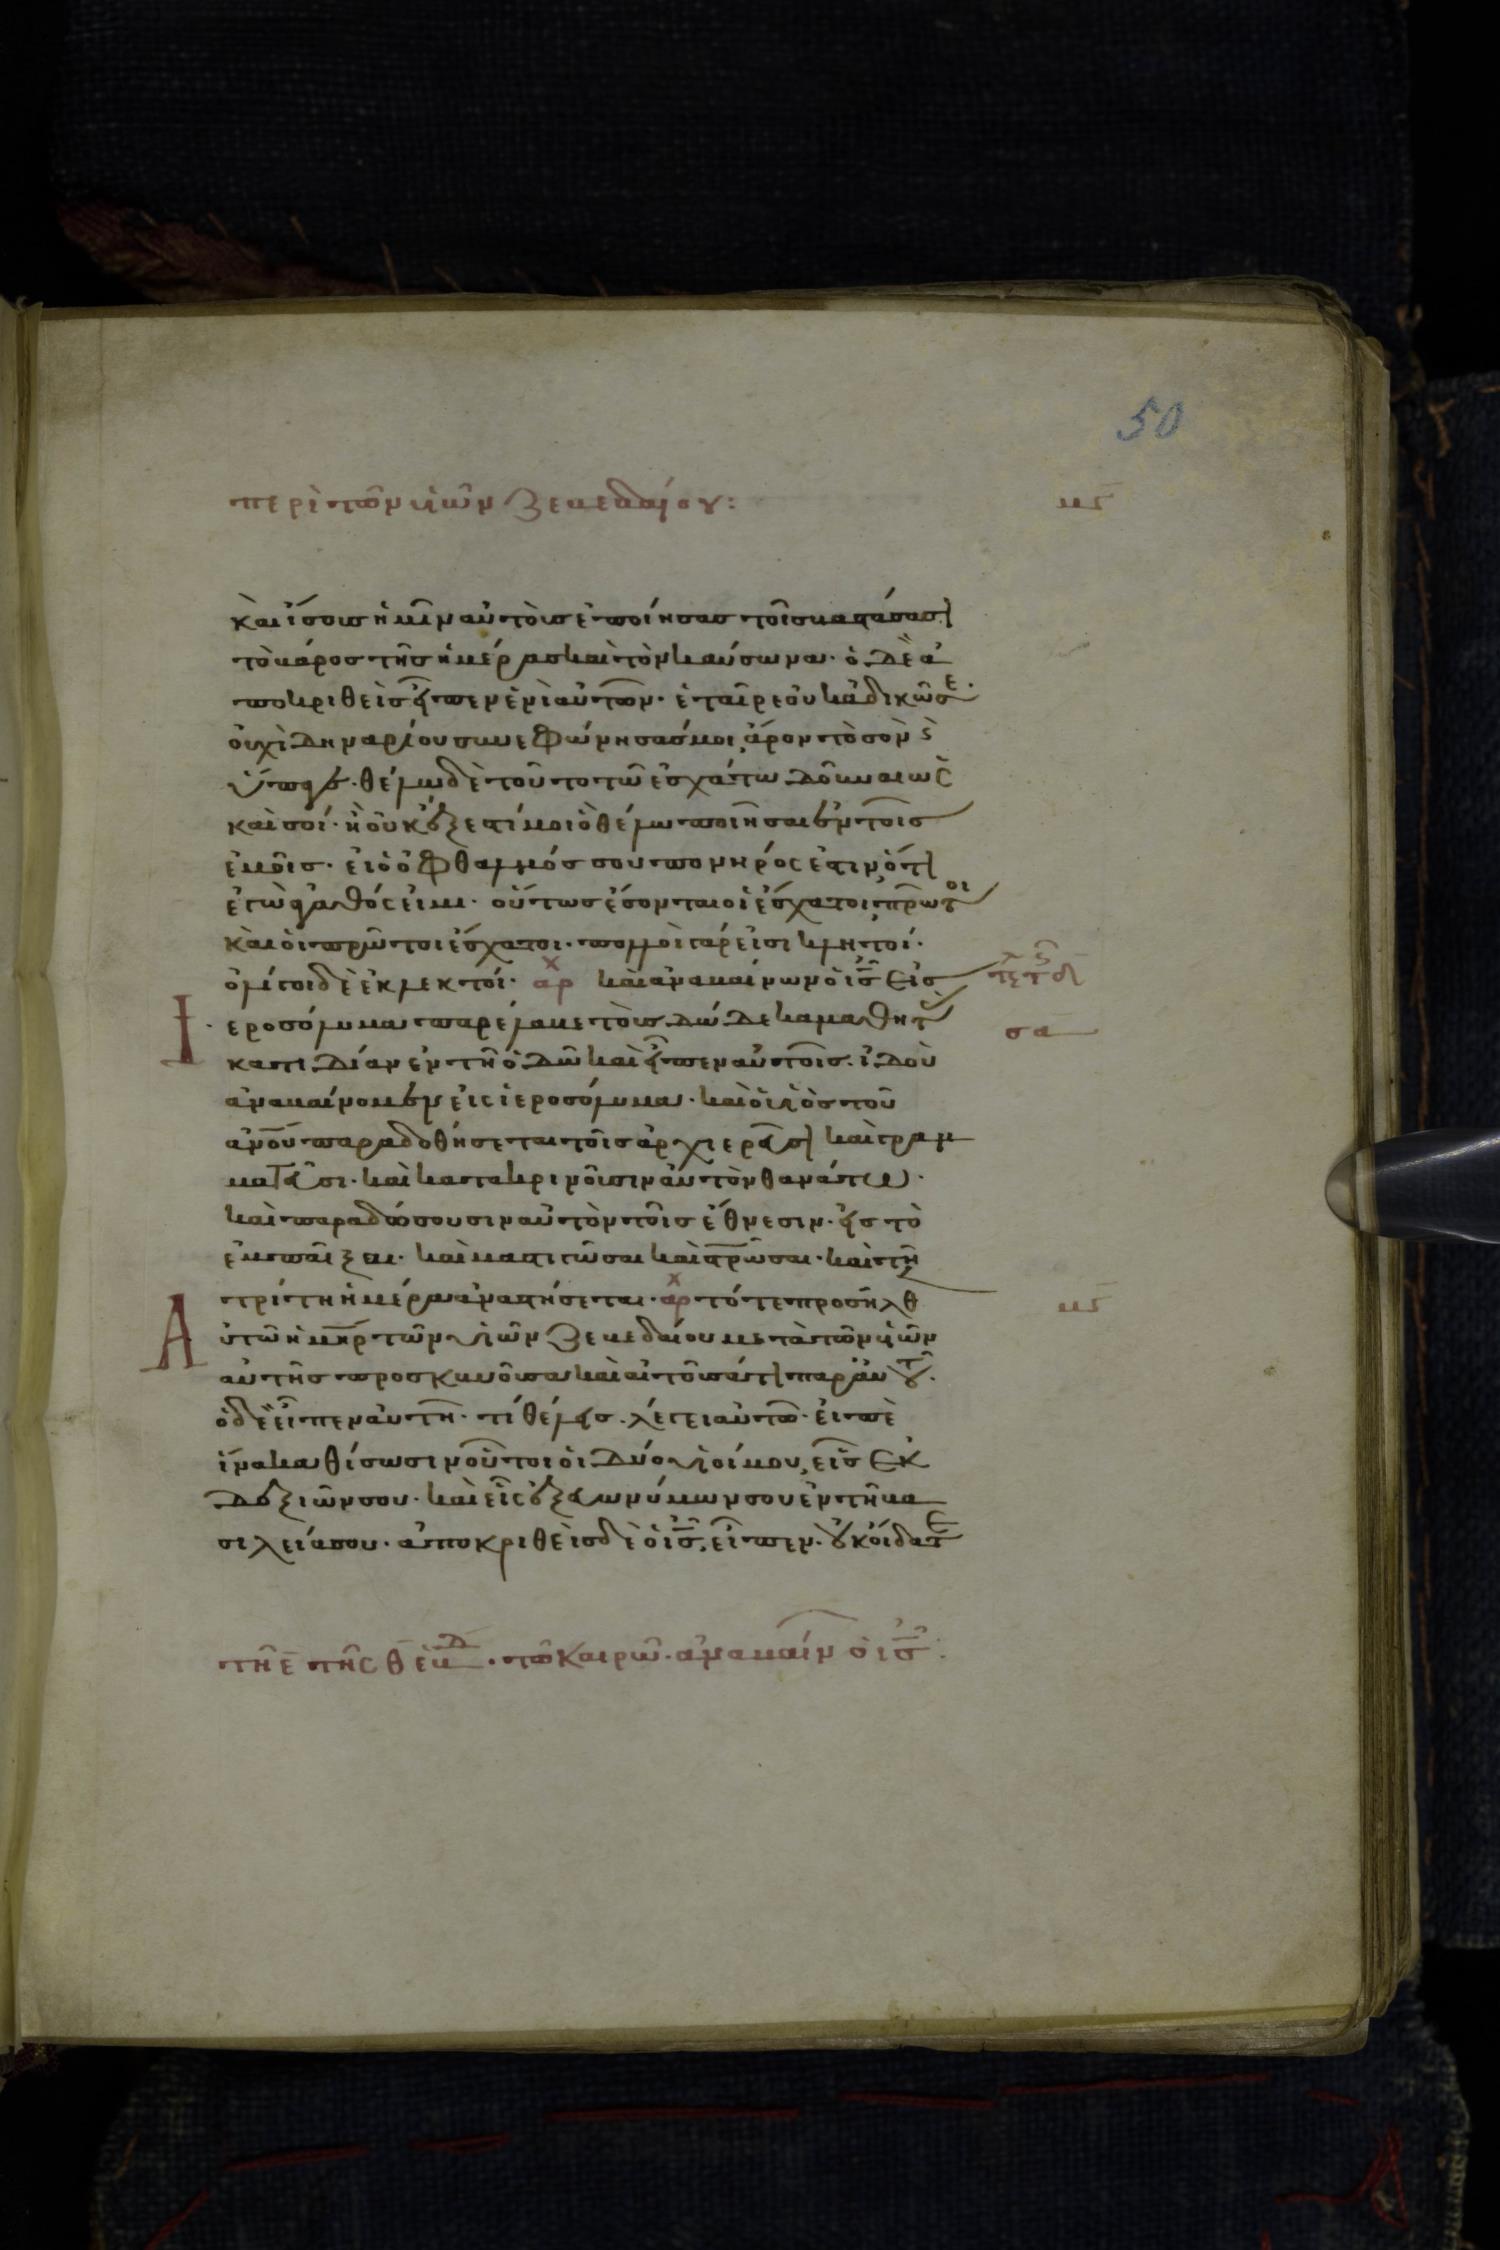 50
περὶ τῶν υἱῶν Ζεβεδαίου:
μς
καὶ ἴσους ἡμῖν αὐτοὺς ἐποίησας τοῖς βαστάσασι
τὸ βάρος τῆς ἡμέρας καὶ τὸν καύσωνα· ὁ δὲ ἀ
ποκριθεὶς εἶπεν ἑνὶ αὐτῶν· ἑταῖρε οὐκ ἀδικῶ σε·
οὐχὶ δηναρίου συνεφώνησάς μοι, ἆρον τὸ σὸν ϗ
ὕπαγε· θέλω δὲ τούτῳ τῷ ἐσχάτῳ δοῦναι ὡς
καὶ σοί· ἢ οὐκ ἔξεστί μοι ὃ θέλω ποιῆσαι ἐν τοῖς
ἐμοῖς· εἰ ὁ ὀφθαλμός σου πονηρός ἐστιν ὅτι
ἐγὼ ἀγαθός εἰμι· οὕτως ἔσονται οἱ ἔσχατοι, πρῶτοι
καὶ οἱ πρῶτοι ἔσχατοι· πολλοὶ γάρ εἰσι κλητοί·
ὀλίγοι δὲ ἐκλεκτοί· αρχ καὶ ἀναβαίνων ὁ ις εἰς
ἱεροσόλυμα παρέλαβε τοὺς δώδεκα μαθητὰς
σα
κατ ιδίαν ἐν τῇ ὁδῷ καὶ εἶπεν αὐτοῖς· ἰδοὺ
ἀναβαίνομεν εἰς ἱεροσόλυμα· καὶ ὁ υἱὸς τοῦ
ανου παραδοθήσεται τοῖς ἀρχιερεῦσι καὶ γραμ
ματεῦσι· καὶ κατακρινοῦσιν αὐτὸν θανάτω·
καὶ παραδώσουσιν αὐτὸν τοῖς ἔθνεσιν· εἰς τὸ
ἐμπαῖξαι· καὶ μαστιγῶσαι καὶ στρῶσαι· καὶ τῇ
τρίτη ἡμέρα ἀναστήσεται· αρχ τότε προσῆλθ
μς
Αὐτῶ ἡ μηρ τῶν υἱῶν Ζεβεδαίου μετὰ τῶν υἱῶν
αὐτῆς προσκυνοῦσα καὶ αἰτοῦσά τι παρ αὐτοῦ·
ὁ δὲ εἶπεν αὐτῇ· τί θέλεις· λέγει αὐτῶ· εἰπὲ
ἵνα καθίσωσιν οὗτοι οἱ δύο υἱοί μου, εἷς ἐκ
δεξιῶν σου· καὶ εἷς ἐξ εὐωνύμων σου ἐν τῇ βα
σιλείᾳ σου· ἀποκριθεὶς δὲ ὁ ις, εἶπεν· οὐκ οἴδατε
τῆ ε τῆς θ ἑβδ· τῶ καιρῶ· ἀναβαίν ὁ ις: